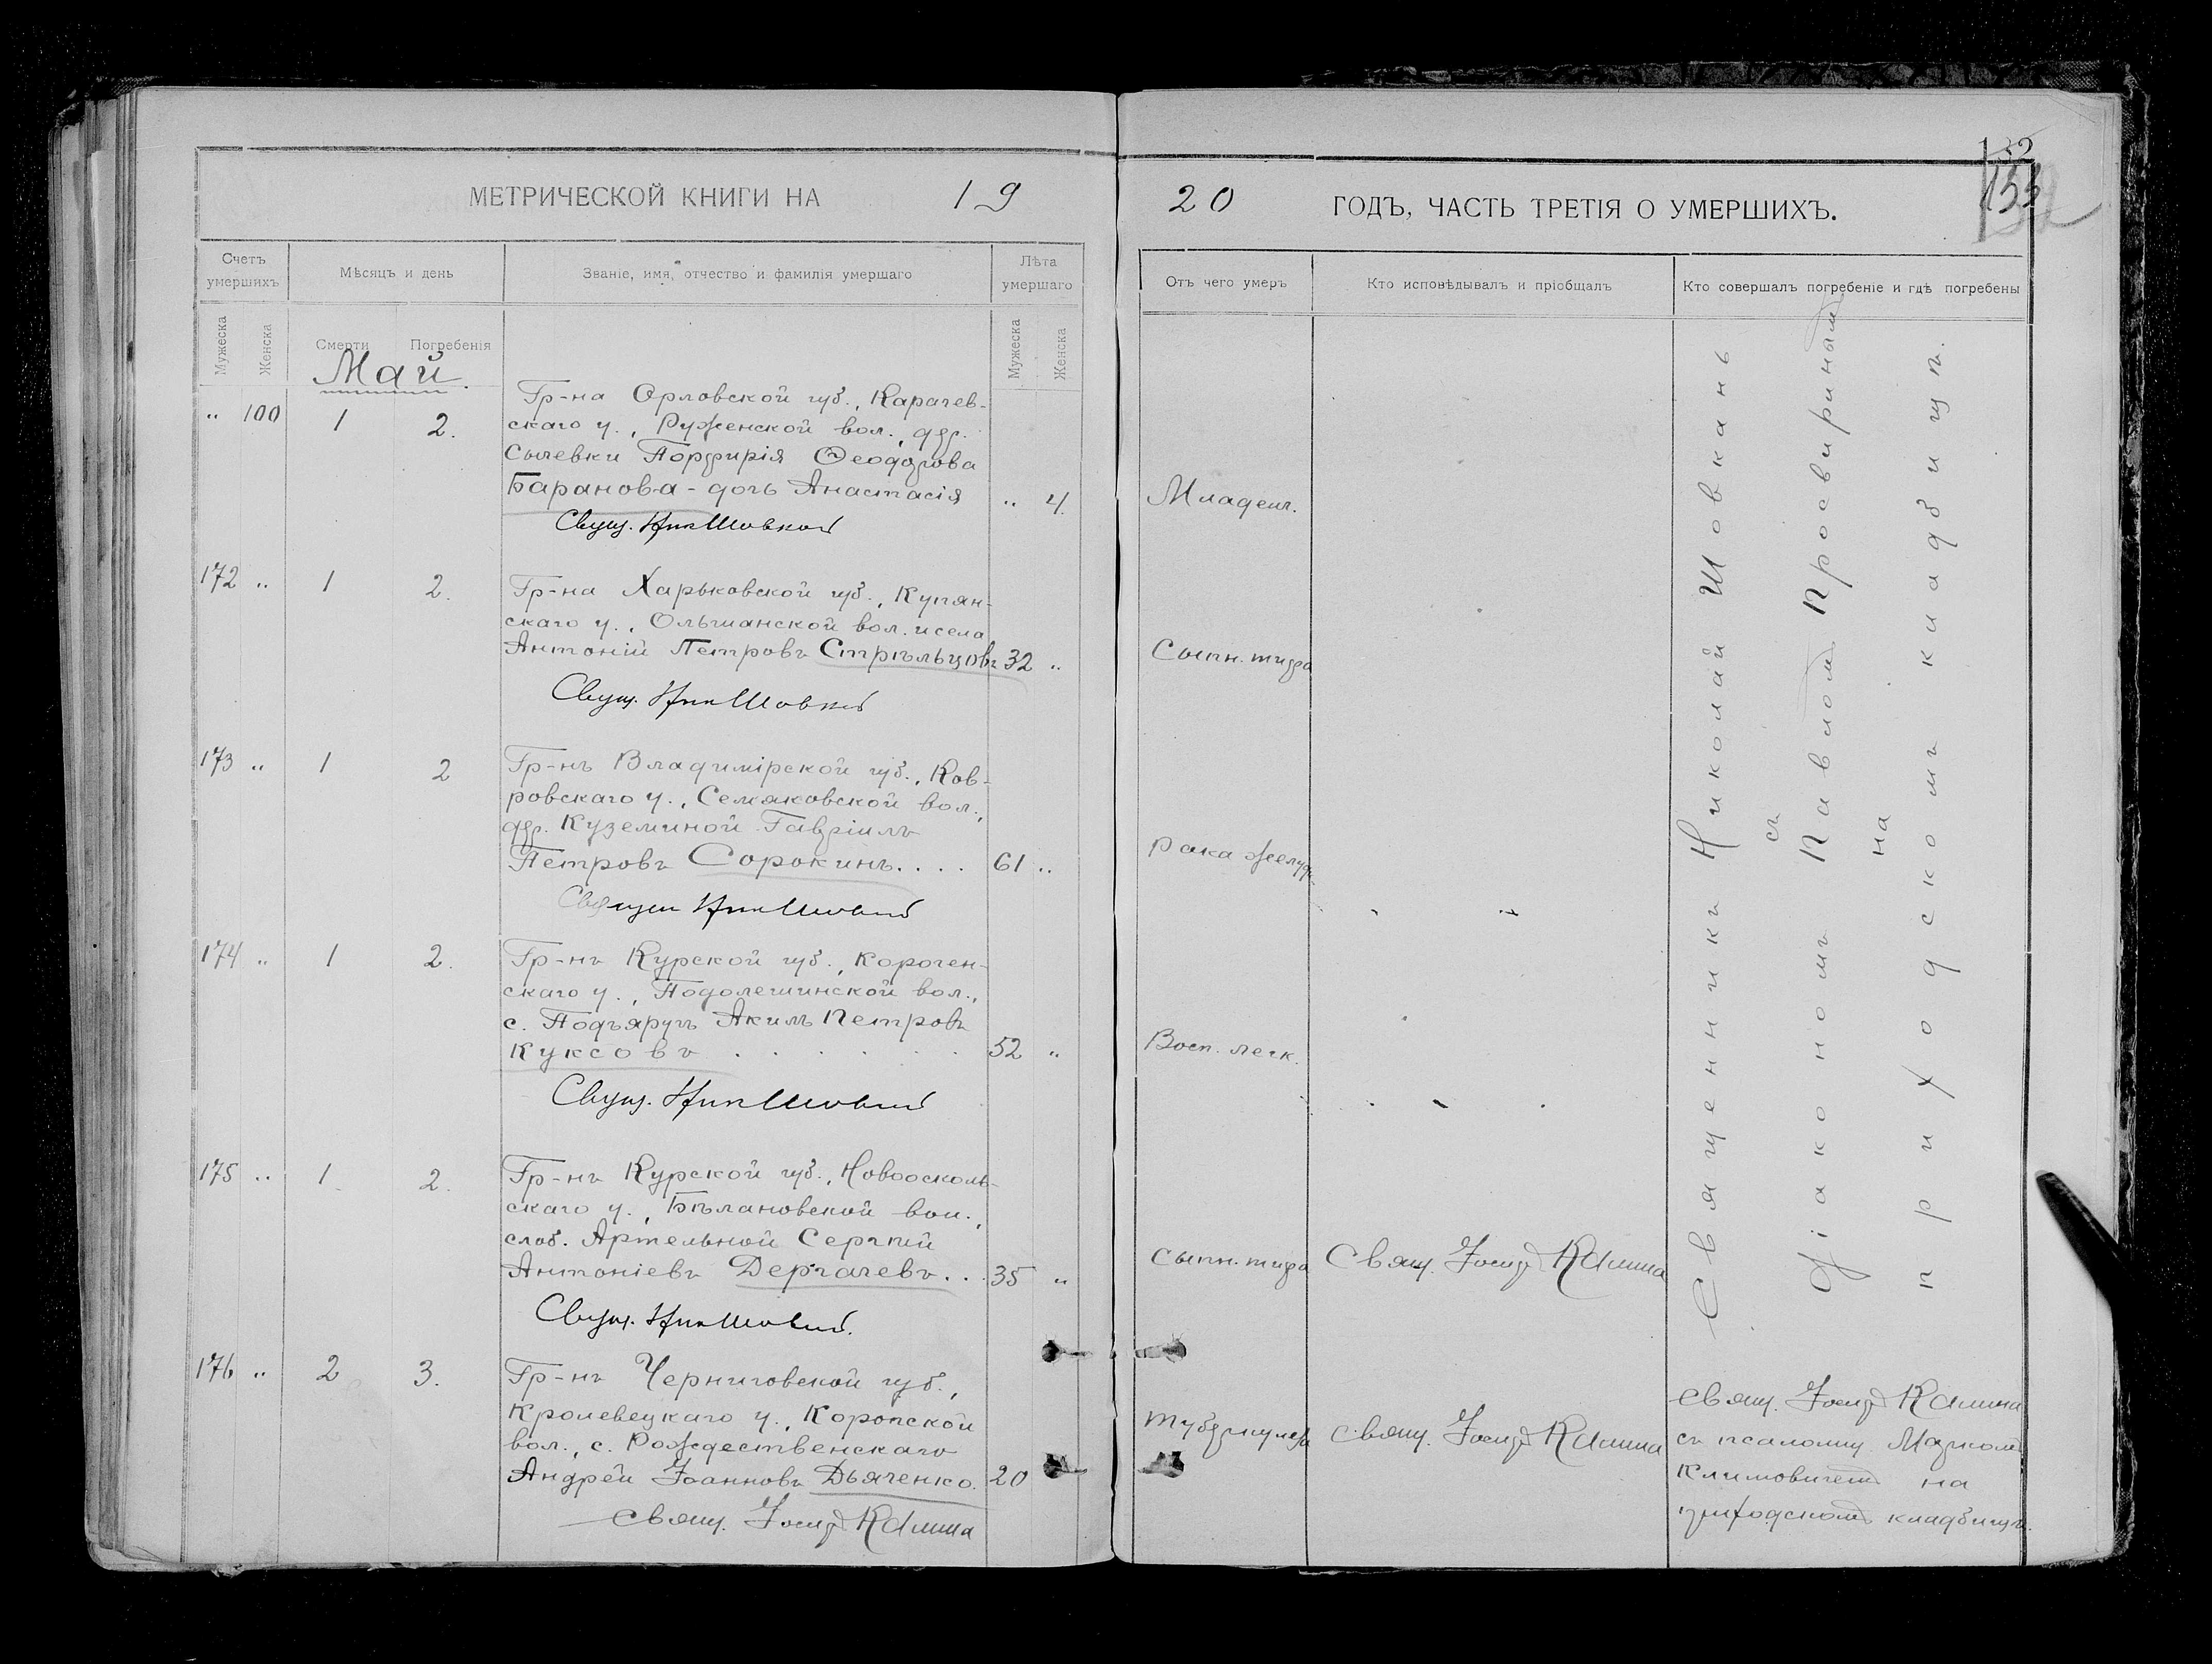 132
133
МЕТРИЧЕСКОЙ КНИГИ НА 19
20 ГОДЪ, ЧАСТЬ ТРЕТІЯ О УМЕРШИХЪ.
Счетъ умершихъ
Мѣсяцъ и день
Званіе, имя, отчество и фамилія умершаго
Лѣта умершаго
Отъ чего умеръ
Кто исповѣдывалъ и пріобщалъ
Кто совершалъ погребеніе и гдѣ погребены
Мужеска
Женска
Смерти
Погребенія
Мужеска
Женска
Май.
„ 100 1 2.
Гр-на Орловской губ., Карачев-
скаго у., Руженской вол., дер.
Сычевки Порфирія Ѳеодорова
Баранова - дочь Анастасія „ 4. Младенч.
Свящ. Ник Шовкан
172 „ 1 2.
Гр-на Харьковской губ., Купян-
скаго у., Ольшанской вол. и села
Антоній Петровъ Стрѣльцовъ 32 „ Сыпн. тифа
Свящ. Ник Шовкан
173 „ 1 2
Гр-нъ Владимірской губ., Ков-
ровскаго у., Семяковской вол.,
дер. Куземиной Гавріилъ
Петровъ Сорокинъ.... 61 „ Рака желуд.
Священ Ник Шовкан
174 „ 1 2.
Гр-нъ Курской губ., Корочен-
скаго у., Подолешинской вол.,
с. Подъяругъ Акимъ Петровъ
Куксовъ . . . . . . 52 „ Восп. легк.
Свящ. Ник Шовкан
175 „ 1. 2.
Гр-нъ Курской губ., Новооскол-
скаго у., Бѣлановской вол.,
слоб. Артельной Сергѣй
Антоніевъ Дергачевъ... 35 „ Сыпн. тифа Свящ. Іосиф Калина
Свящ. Ник Шовкан.
Священникъ Николай Шовканъ
съ
Діакономъ Павлом Просвириным
на
приходскомъ кладбищѣ.
176 „ 2 3.
Гр-нъ Черниговской губ.,
Кролевецкаго у., Коропской
вол., с. Рождественскаго
Андрей Іоанновъ Дьяченко. 20 Туберкулеза Свящ. Іосиф Калина
Свящ. Іосиф Калина
Свящ. Іосиф Калина
съ псаломщ. Марком
Климовичем на
приходском кладбищѣ.